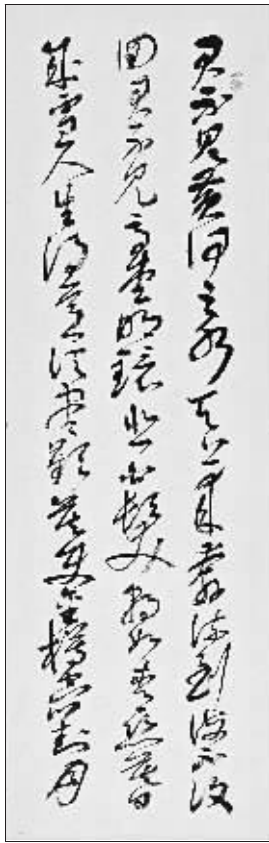 君不見黄河之水天上来奔流到海不復
回君不見高堂明鏡悲白髪朝如青絲暮
成雪人生得意須盡歓莫使金樽空對月